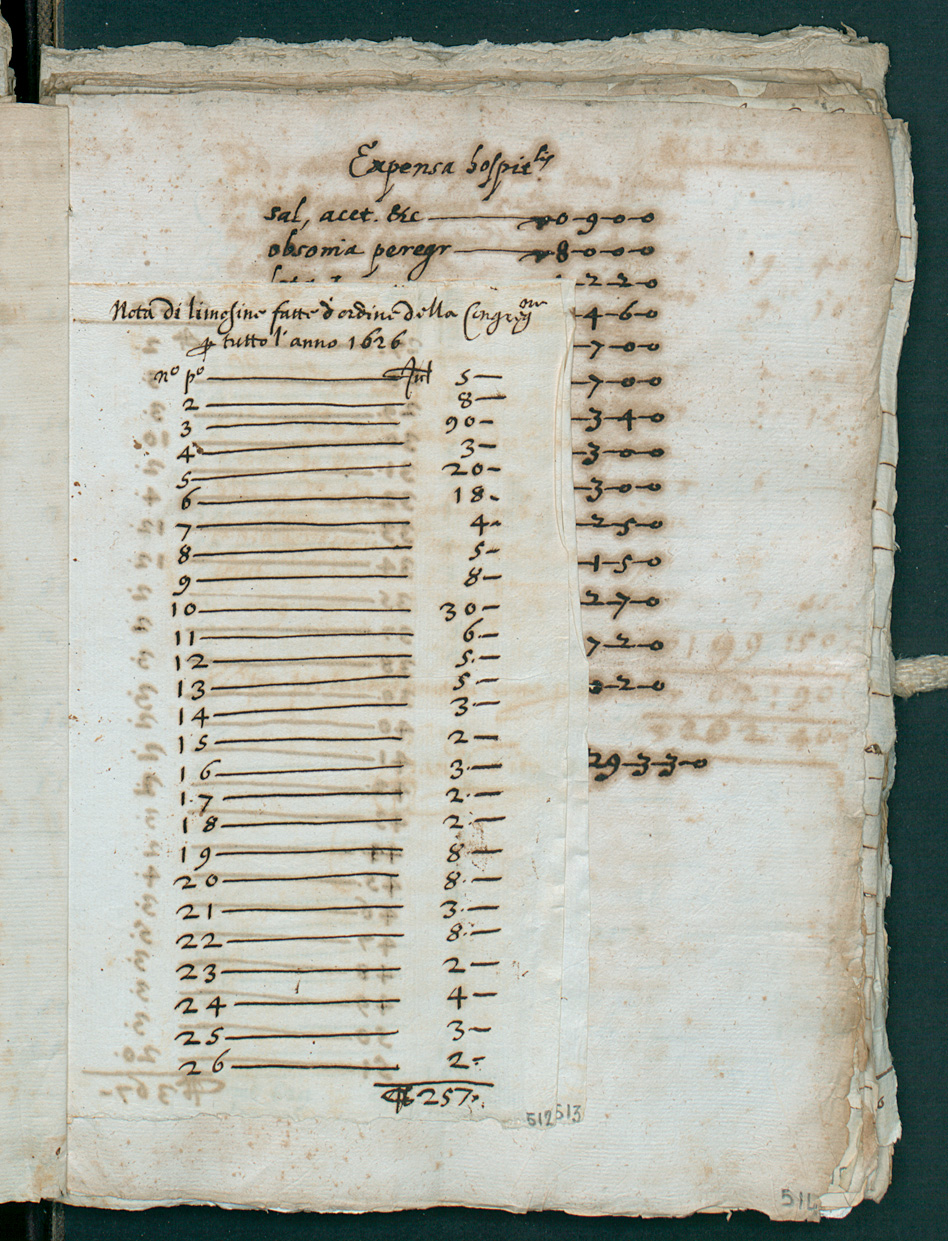 Expensa hospit^lis
sal, acet. &c — 0-9-0-0
obsonia peregr — 8-0-0-0
2-2-0
4-6-0
7-0-0
7-0-0
3-4-0
3-0-0
3-0-0
2-5-0
1-5-0
2-7-0
7-2-0
0-2-0
29-3-3-0
Nota di limosine fatte d'ordine della Congreg^one
tutto l'anno 1626
n^o p^o — 5—
2 — 8—
3 — 90-
4 — 3—
5 — 20-
6 — 18-
7 — 4-
8 — 5-
9 — 8-
10 — 30-
11 — 6-
12 — 5-
13 — 5-
14 — 3-
15 — 2-
16 — 3-
17 — 2-
18 — 2-
19 — 8-
20 — 8-
21 — 3-
22 — 8-
23 — 2-
24 — 4-
25 — 3-
26 — 2-
257
512 513